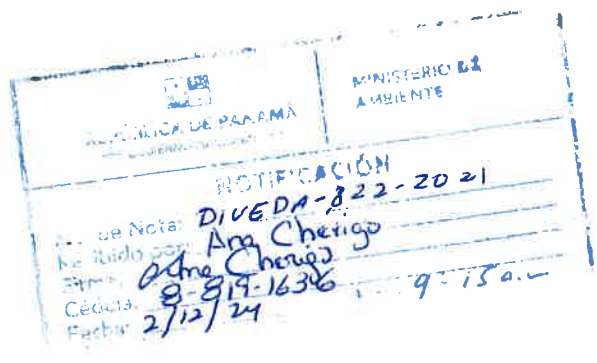 REPÚBLICA DE PANAMÁ
MINISTERIO DE
AMBIENTE
NOTIFICACIÓN
de Nota: DIVEDA-822-2021
Recibido por: Ana Cherigo
Firma: Ana Cherigo
Cédula: 8-819-1636
Fecha: 2/12/24 9-15 a.